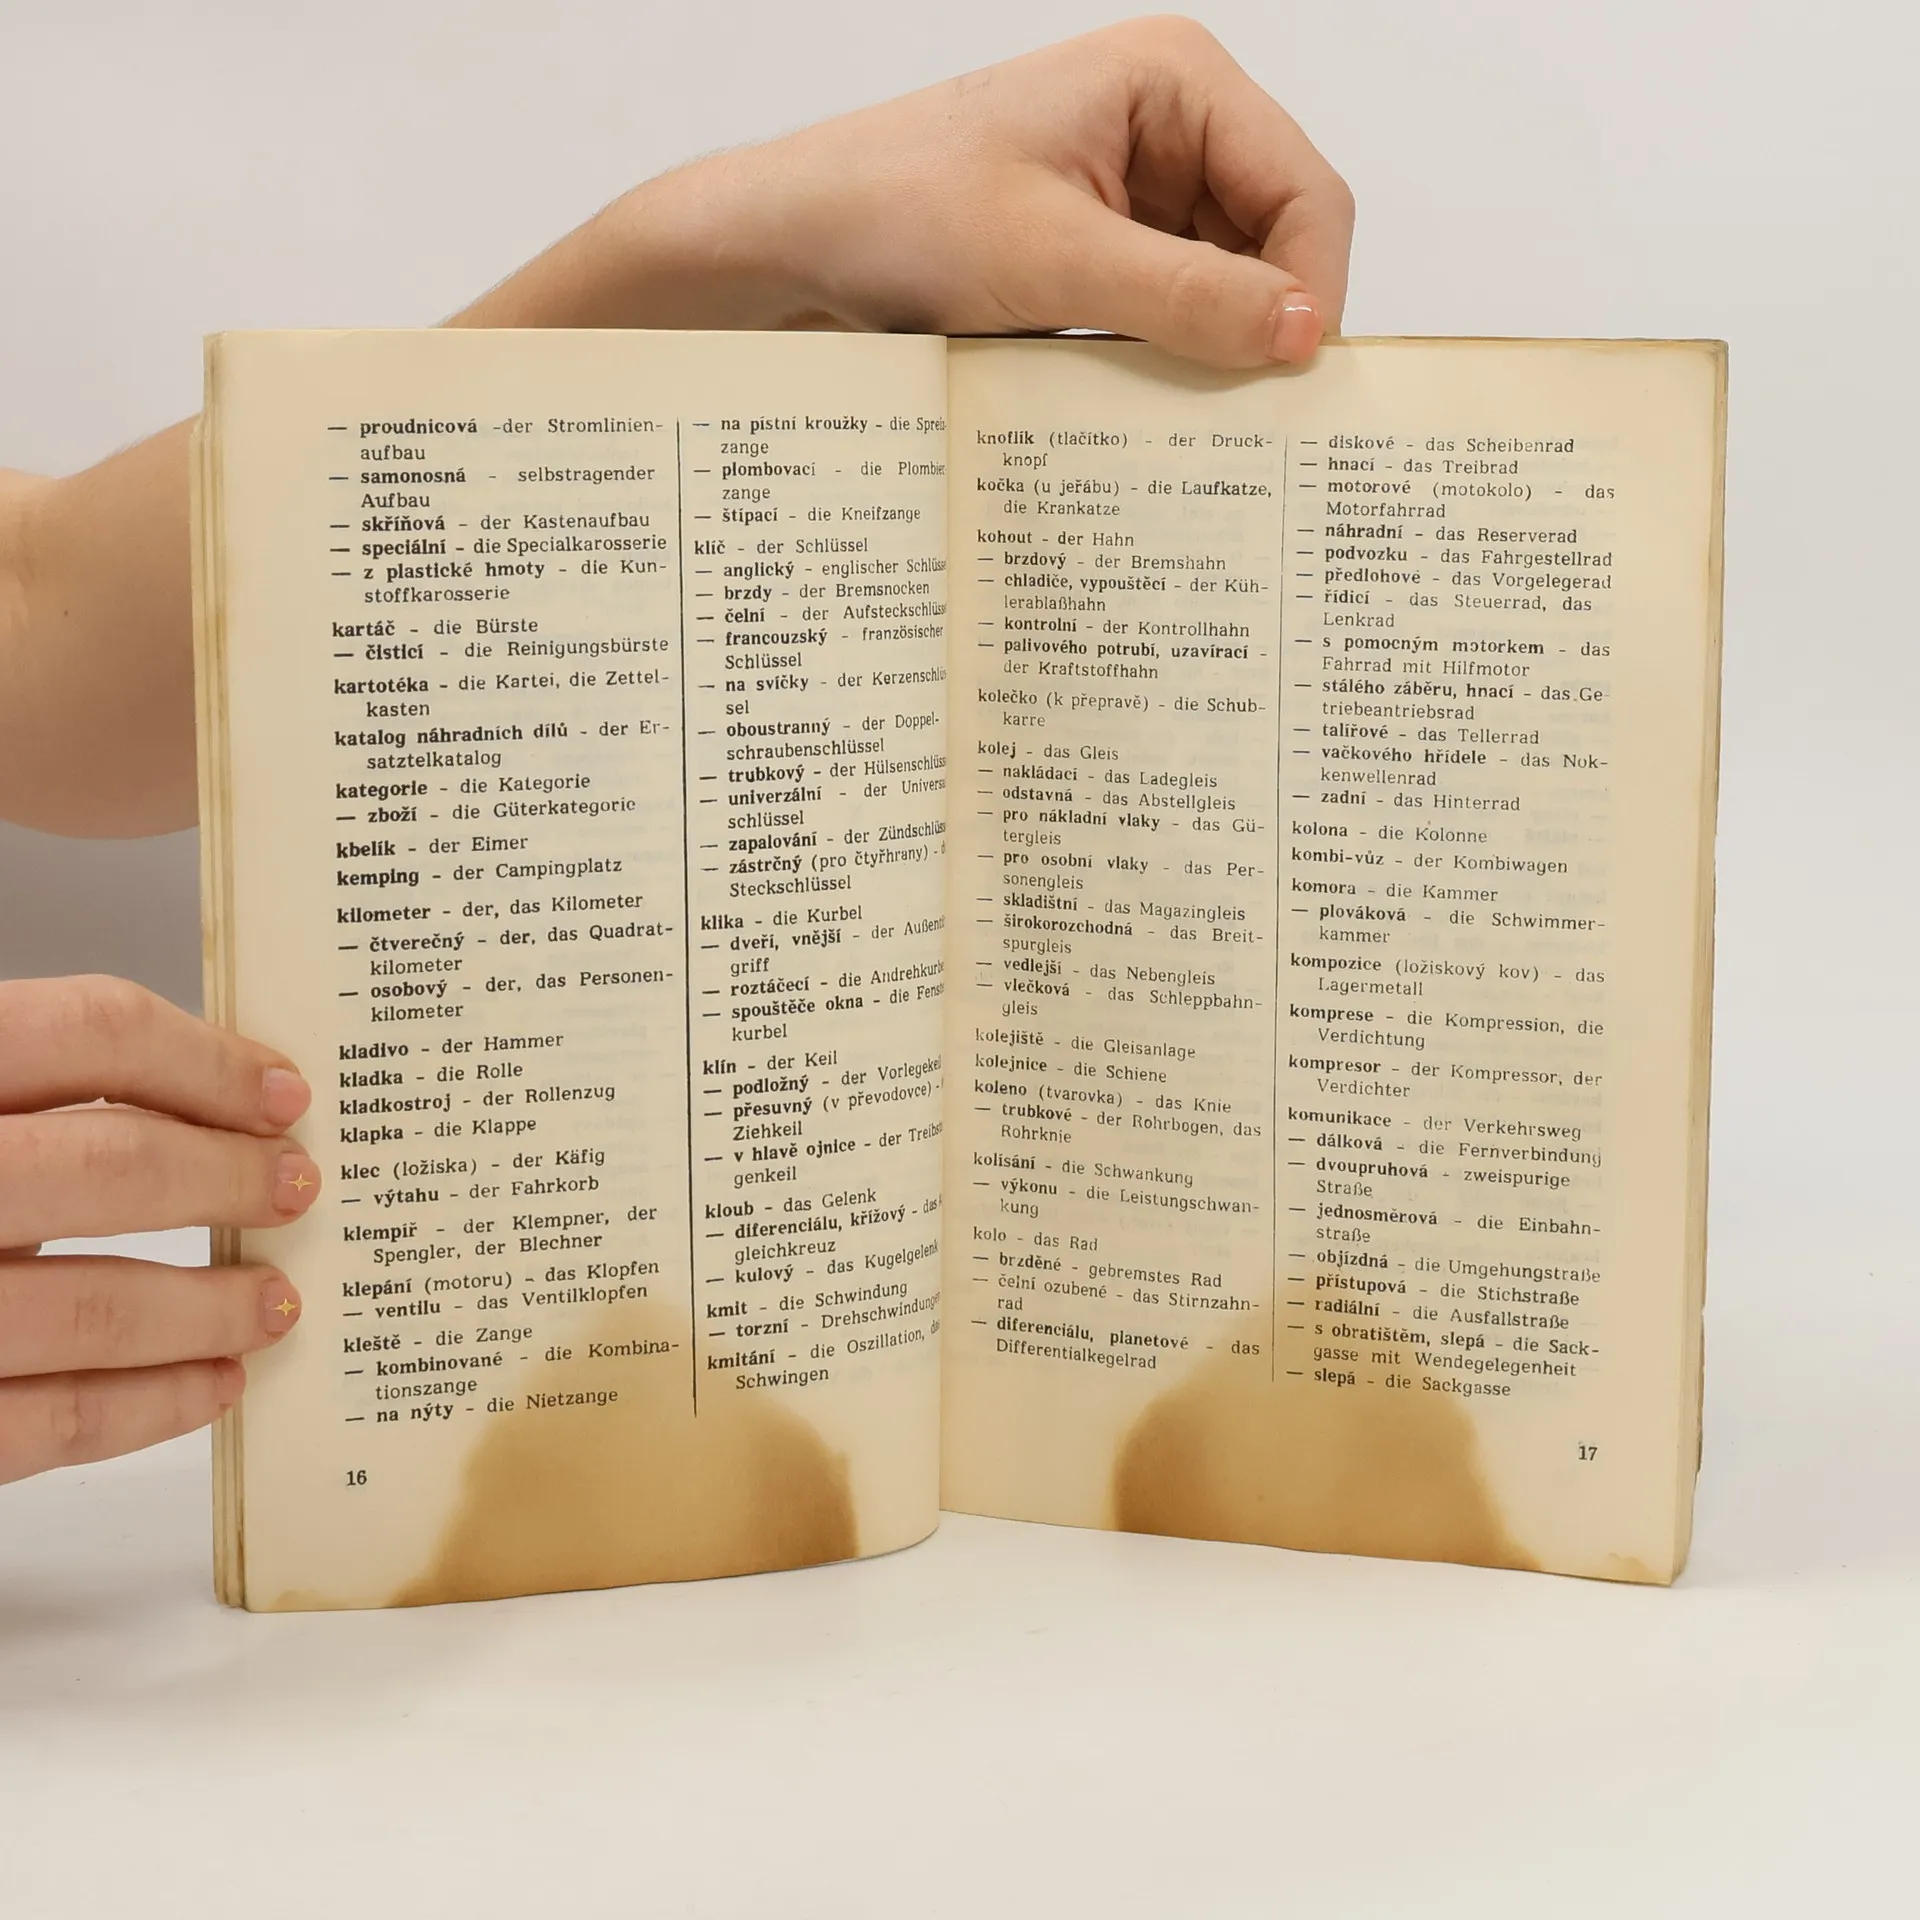 — proudnicová -der Stromlinien-
aufbau
— samonosná - selbstragender
Aufbau
— skříňová - der Kastenaufbau
— speciální - die Specialkarosserie
— z plastické hmoty - die Kun-
stoffkarosserie
kartáč - die Bürste
— čisticí - die Reinigungsbürste
kartotéka - die Kartei, die Zettel-
kasten
katalog náhradních dílů - der Er-
satztelkatalog
kategorie - die Kategorie
— zboží - die Güterkategorie
kbelík - der Eimer
kemping - der Campingplatz
kilometer - der, das Kilometer
— čtverečný - der, das Quadrat-
kilometer
— osobový - der, das Personen-
kilometer
kladivo - der Hammer
kladka - die Rolle
kladkostroj - der Rollenzug
klapka - die Klappe
klec (ložiska) - der Käfig
— výtahu - der Fahrkorb
klempíř - der Klempner, der
Spengler, der Blechner
klepání (motoru) - das Klopfen
— ventilu - das Ventilklopfen
kleště - die Zange
— kombinované - die Kombina-
tionszange
— na nýty - die Nietzange
16
— na pístní kroužky - die
zange
— plombovací - die
zange
— štípací - die Kneifzange
klíč - der Schlüssel
— anglický - englischer
— brzdy - der Bremsnocken
— čelní - der
— francouzský - französischer
Schlüssel
— na svíčky - der
sel
— oboustranný - der Doppel-
schraubenschlüssel
— trubkový - der
— univerzální - der
schlüssel
— zapalování - der
— zástrčný (pro čtyřhrany) -
Steckschlüssel
klika - die Kurbel
— dveří, vnější - der
griff
— roztáčecí - die
— spouštěče okna - die
kurbel
klín - der Keil
— podložný - der
— přesuvný (v převodovce) -
Ziehkeil
— v hlavě ojnice - der
genkeil
kloub - das Gelenk
— diferenciálu, křížový - das
gleichkreuz
— kulový - das Kugelgelenk
kmit - die Schwindung
— torzní - Drehschwindungen
kmitání - die Oszillation,
Schwingen
knoflík (tlačítko) - der Druck-
knopf
kočka (u jeřábu) - die Laufkatze,
die Krankatze
kohout - der Hahn
— brzdový - der Bremshahn
— chladiče, vypouštěcí - der Küh-
lerablaßhahn
— kontrolní - der Kontrollhahn
— palivového potrubí, uzavírací -
der Kraftstoffhahn
kolečko (k přepravě) - die Schub-
karre
kolej - das Gleis
— nakládací - das Ladegleis
— odstavná - das Abstellgleis
— pro nákladní vlaky - das Gü-
tergleis
— pro osobní vlaky - das Per-
sonengleis
— skladištní - das Magazingleis
— širokorozchodná - das Breit-
spurgleis
— vedlejší - das Nebengleis
— vlečková - das Schleppbahn-
gleis
kolejiště - die Gleisanlage
kolejnice - die Schiene
koleno (tvarovka) - das Knie
— trubkové - der Rohrbogen, das
Rohrknie
kolísání - die Schwankung
— výkonu - die Leistungschwan-
kung
kolo - das Rad
— brzděné - gebremstes Rad
— čelní ozubené - das Stirnzahn-
rad
— diferenciálu, planetové - das
Differentialkegelrad
— diskové - das Scheibenrad
— hnací - das Treibrad
— motorové (motokolo) - das
Motorfahrrad
— náhradní - das Reserverad
— podvozku - das Fahrgestellrad
— předlohové - das Vorgelegerad
— řídicí - das Steuerrad, das
Lenkrad
— s pomocným motorkem - das
Fahrrad mit Hilfmotor
— stálého záběru, hnací - das Ge-
triebeantriebsrad
— talířové - das Tellerrad
— vačkového hřídele - das Nok-
kenwellenrad
— zadní - das Hinterrad
kolona - die Kolonne
kombi-vůz - der Kombiwagen
komora - die Kammer
— plováková - die Schwimmer-
kammer
kompozice (ložiskový kov) - das
Lagermetall
komprese - die Kompression, die
Verdichtung
kompresor - der Kompressor, der
Verdichter
komunikace - der Verkehrsweg
— dálková - die Fernverbindung
— dvoupruhová - zweispurige
Straße
— jednosměrová - die Einbahn-
straße
— objízdná - die Umgehungstraße
— přístupová - die Stichstraße
— radiální - die Ausfallstraße
— s obratištěm, slepá - die Sack-
gasse mit Wendegelegenheit
— slepá - die Sackgasse
17